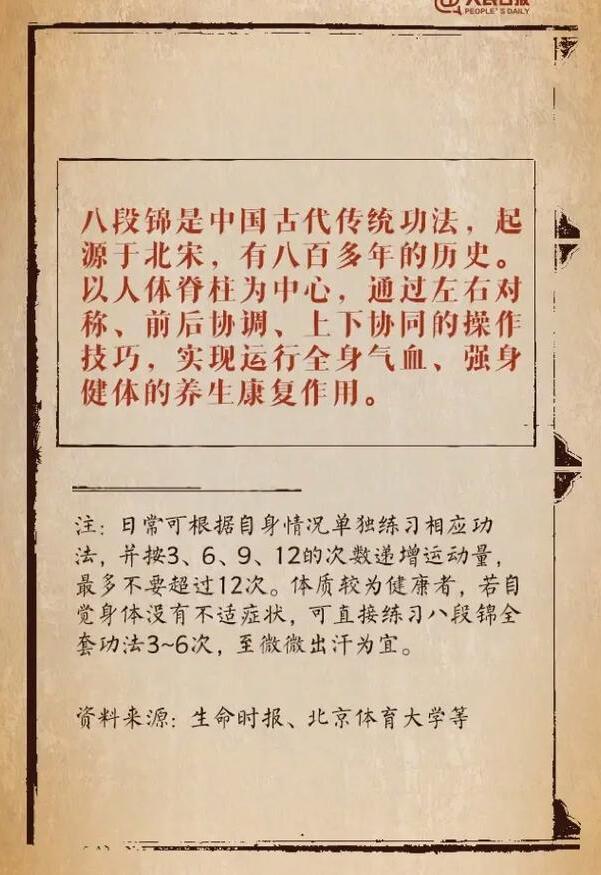 人民日报
PEOPLE'S DAILY
八段锦是中国古代传统功法，起
源于北宋，有八百多年的历史。
以人体脊柱为中心，通过左右对
称、前后协调、上下协同的操作
技巧，实现运行全身气血、强身
健体的养生康复作用。
注：日常可根据自身情况单独练习相应功
法，并按3、6、9、12的次数递增运动量，
最多不要超过12次。体质较为健康者，若自
觉身体没有不适症状，可直接练习八段锦全
套功法3~6次，至微微出汗为宜。
资料来源：生命时报、北京体育大学等